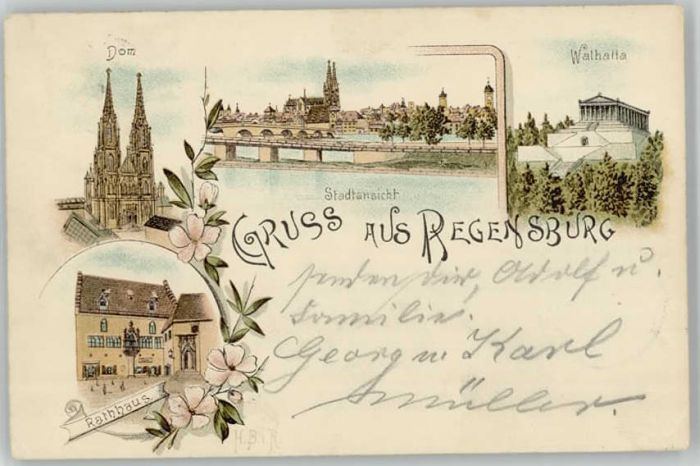 Dom
Walhalla
Stadtansicht
GRUSS AUS REGENSBURG
senden dir, Adolf u.
Familie.
Georg u. Karl
Müller.
Rathhaus.
H.B.i.R.